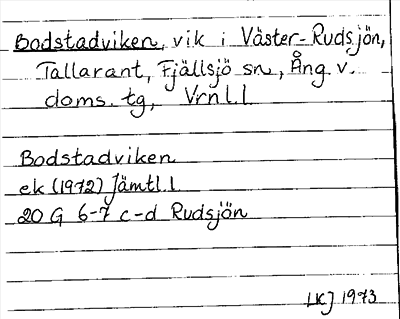 Bodstadviken, vik i Väster-Rudsjön,
Tallarant, Fjällsjö sn, Ång. v.
doms. tg, Vrnl.l
Bodstadviken
ek (1972) Jämtl.l
20 G 6-7 c-d Rudsjön
LKJ 1973